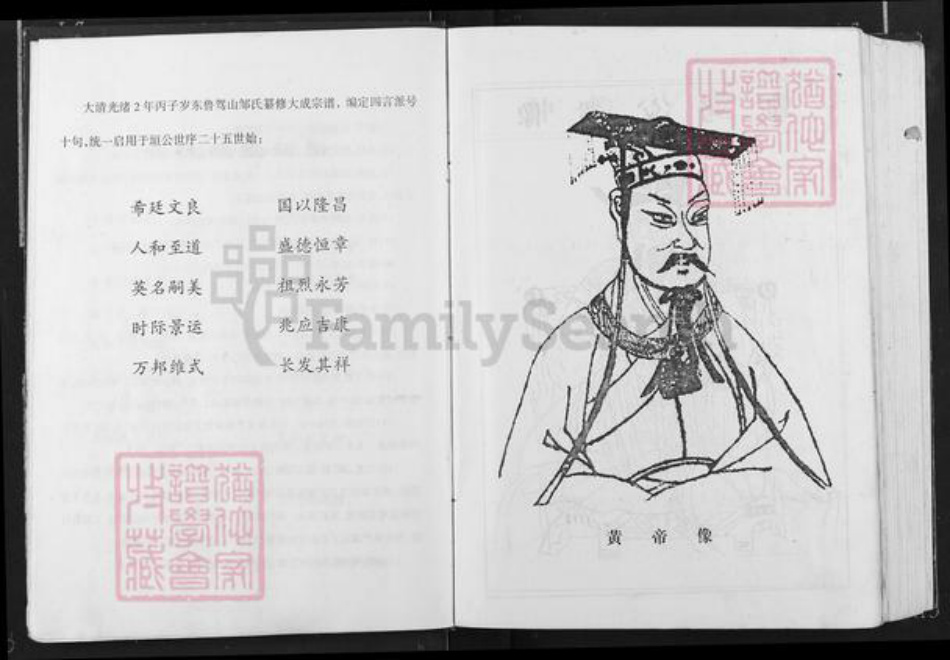 大清光绪2年丙子岁东鲁驾山邹氏纂修大成宗谱，编定四言派号
十句，统一启用于垣公世序二十五世始：
希廷文良 国以隆昌
人和至道 盛德恒章
英名嗣美 祖烈永芳
时际景运 兆应吉康
万邦维式 长发其祥
FamilySearch
黄帝像